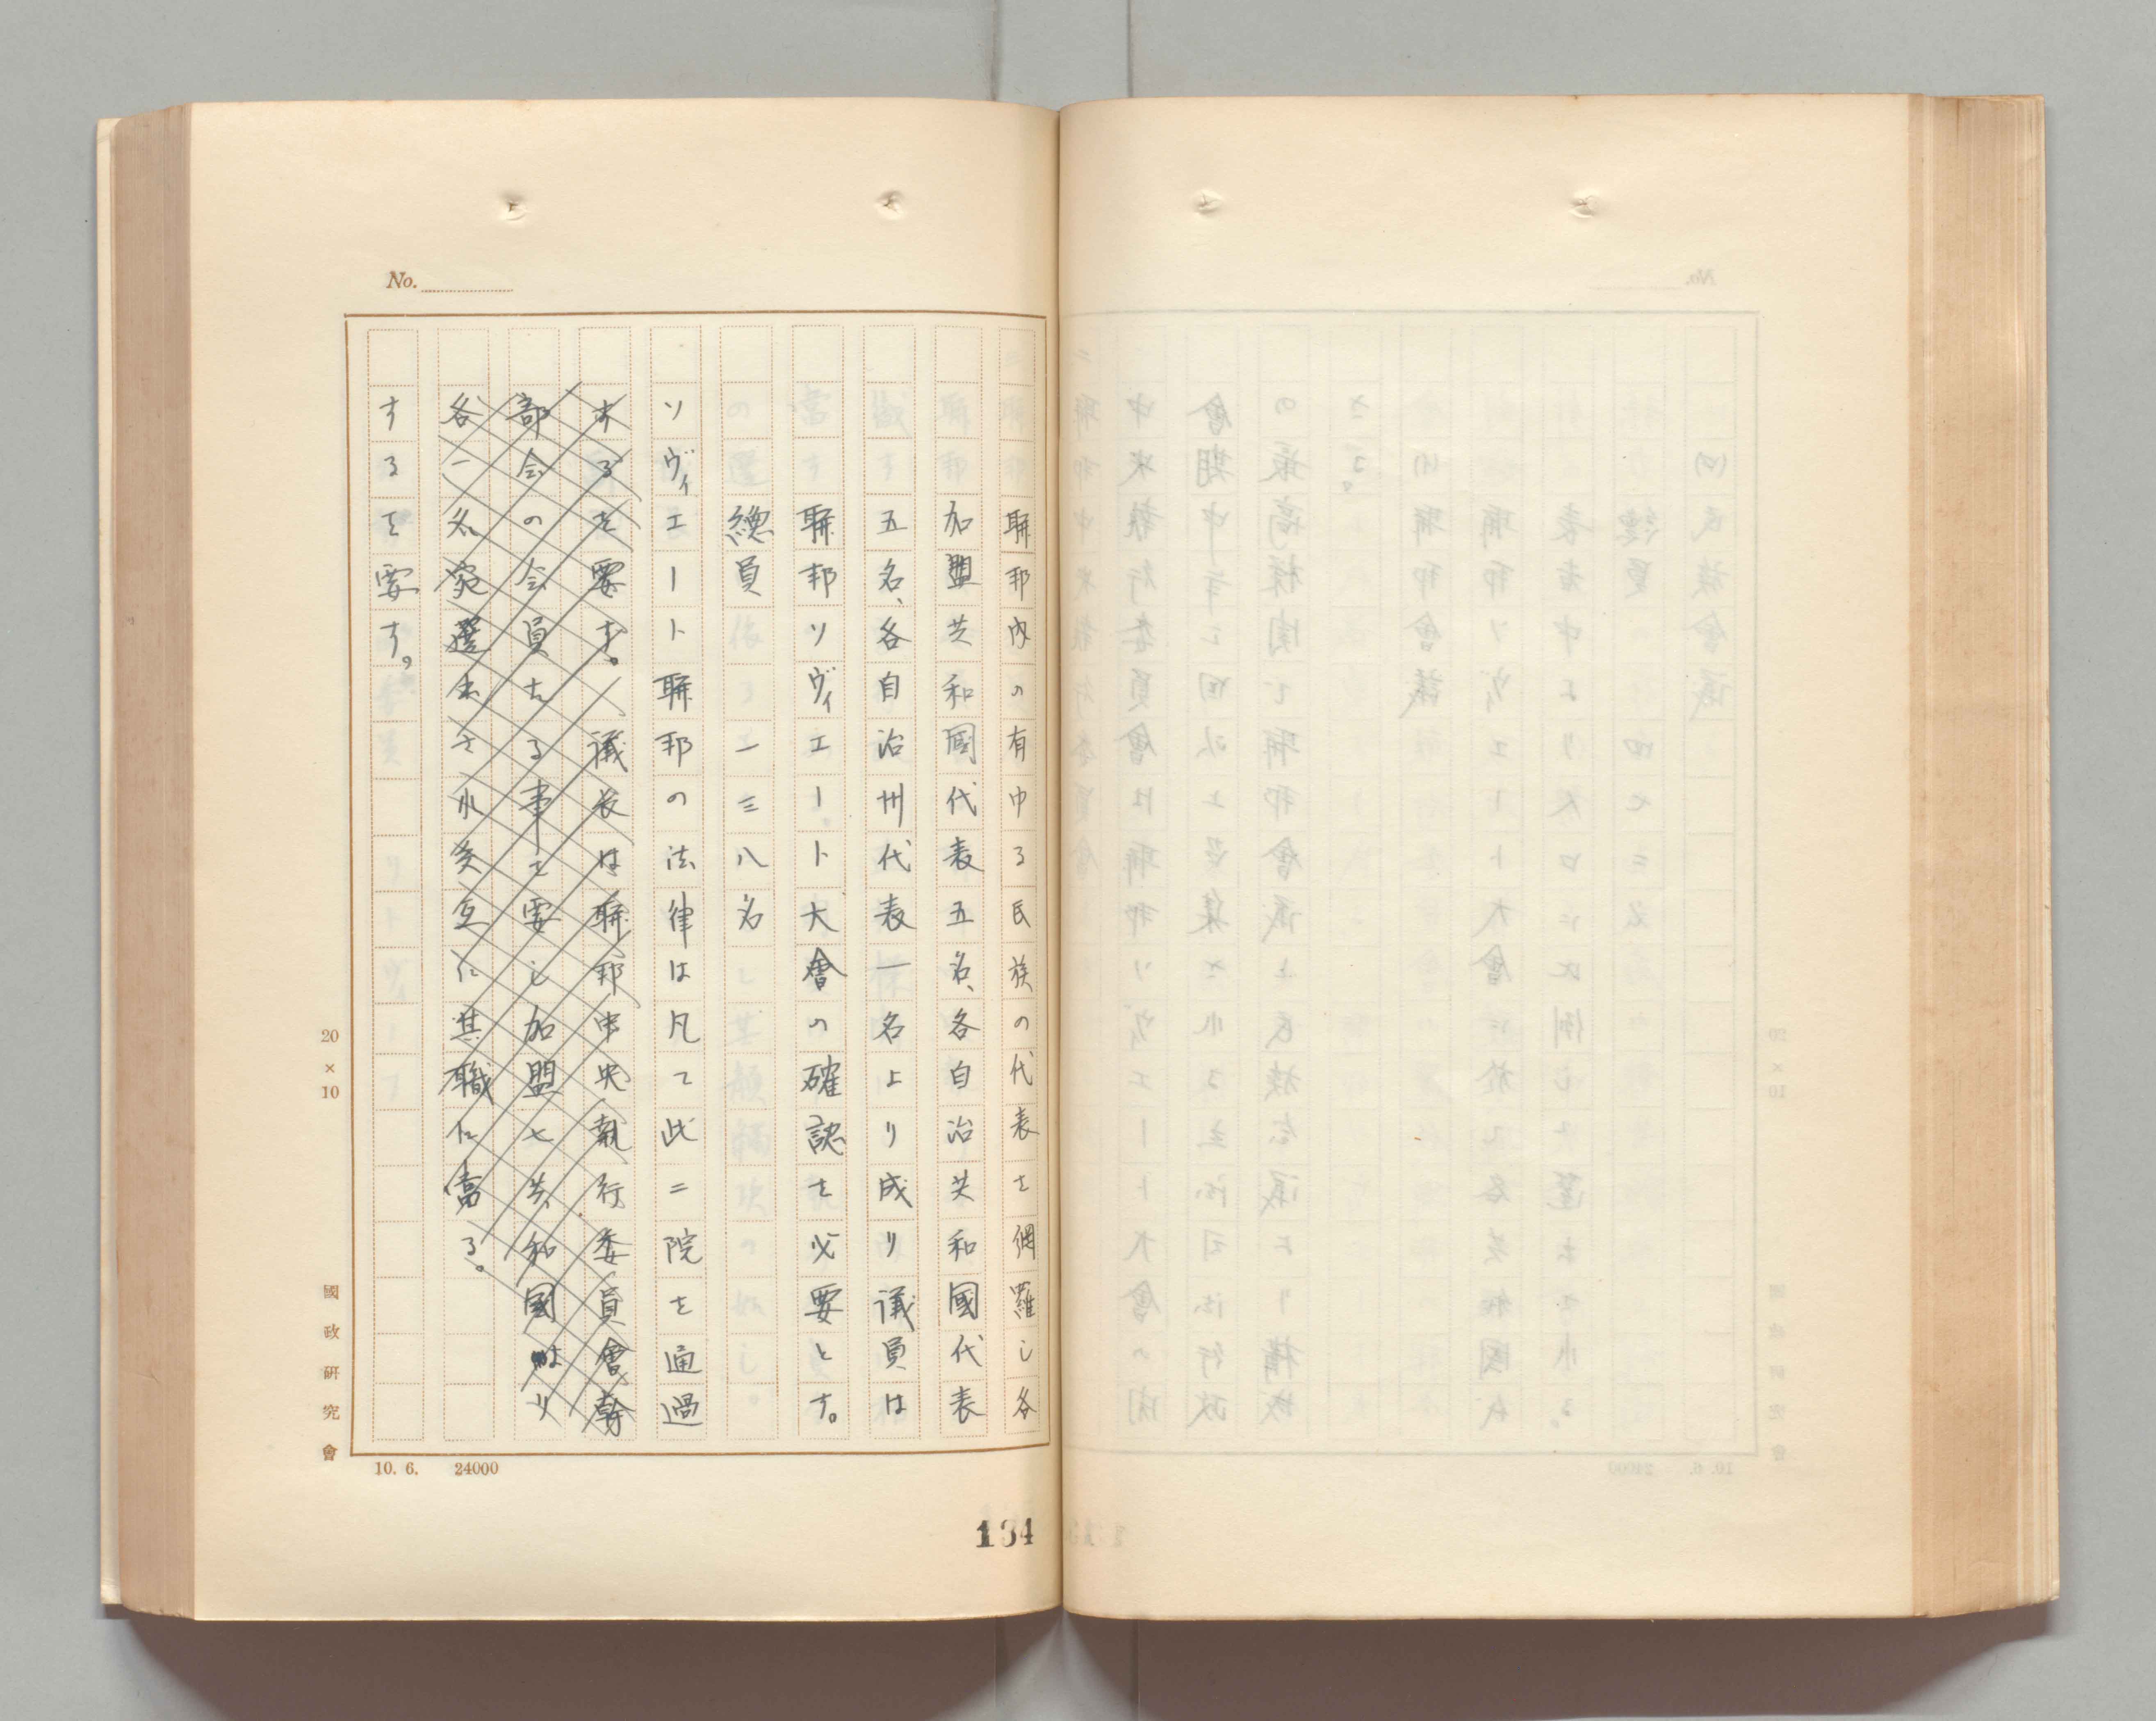 No.
聯邦内の有ゆる民族の代表を網羅し各
加盟共和國代表五名、各自治共和國代表
五名、各自治州代表一名より成り議員は
聯邦ソヴィエート大會の確認を必要とす。
總員 一三八名
ソヴィエート聯邦の法律は凡て此二院を通過
するを要す。 議長は聯邦中央執行委員會幹
部会の会員たる事を要し加盟七共和國より
各一名宛選出され交互に其職に當る。
するを要す。
20×10
國政研究會
10. 6. 24000
134